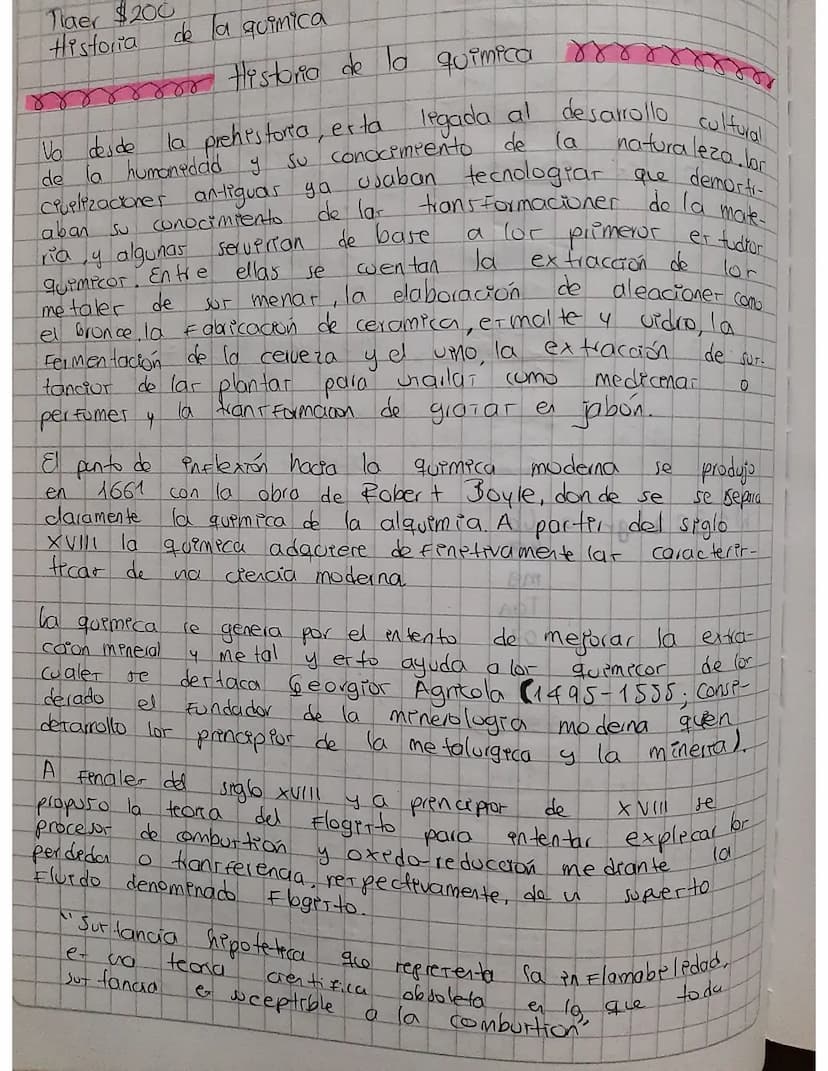 Traer $200
Historia de la química
Historia de la química
Va desde la prehistoria, esta legada al desarrollo cultural
de la humanedad y su conocimiento de la naturaleza. los
civilizaciones antiguas ya usaban tecnologias que demostr-
aban su conocimiento de las transformaciones de la mate-
ria, y algunas serverian de base a los primeros estudios
quimicos. Entre ellas se cuentan la extracción de los
metales de sus menas, la elaboración de aleaciones como
el bronce, la fabricación de ceramica, esmalte y vidrio, la
fermentación de la cerveza y el vino, la extracción de sus-
tancias de las plantas para usarlas como medicinas o
perfumes y la transformacion de grasas en jabón.
El punto de inflexión hacia la química moderna se produjo
en 1661 con la obra de Robert Boyle, donde se se separa
claramente la química de la alquimia. A partir del siglo
XVIII la química adquiere definetivamente las caracterís-
ticas de una ciencia moderna
La química se genera por el entento de mejorar la extra-
ccion mineral y metal y esto ayuda a los químicos de los
cuales se destaca Georgios Agricola (1495-1555; consi-
derado el fundador de la minerologia moderna quen
desarrollo los principios de la metalurgica y la mineria).
A finales del siglo XVIII y a principios de XVIII se
propuso la teoria del flogisto para intentar explicar los
procesos de combustion y oxido-reducción mediante la
perdeda o transferencia, respectivamente, de u supuesto
fluido denominado Flogisto.
"Sustancia hipotetica que representa la inflamabeledad,
es una teoria cientifica obsoleta en la que toda
sustancia es suceptible a la combustion"